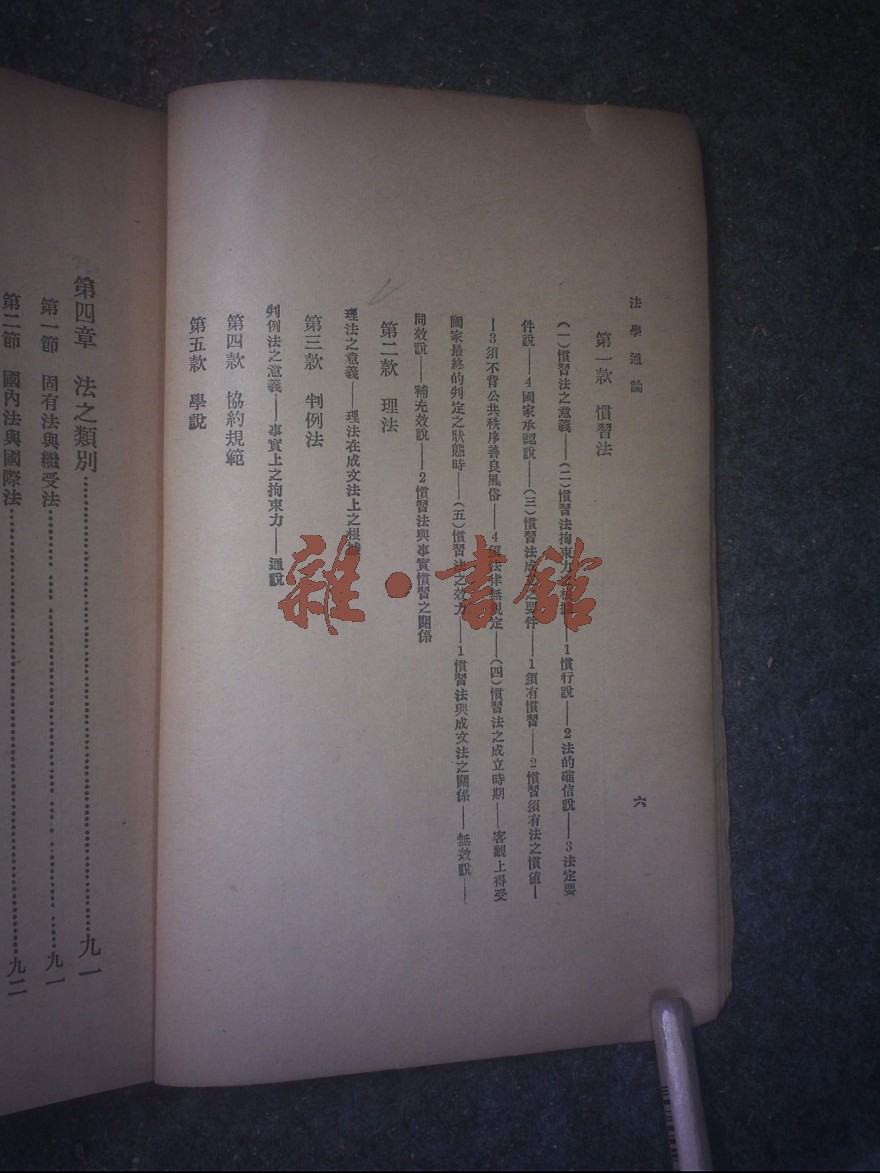 法學通論
六
第一款　慣習法
(一)慣習法之意義——(二)慣習法拘束力之根據——1慣行說——2法的確信說——3法定要
件說——4國家承認說——(三)慣習法成立之要件——1須有慣習——2慣習須有法之價值—
—3須不背公共秩序善良風俗——4須法律無規定——(四)慣習法之成立時期——客觀上得受
國家最終的判定之狀態時——(五)慣習法之效力——1慣習法與成文法之關係——無效說——
同效說——補充效說——2慣習法與事實慣習之關係
第二款　理法
理法之意義——理法在成文法上之根據
第三款　判例法
判例法之意義——事實上之拘束力——通說
第四款　協約規範
第五款　學說
第四章　法之類別……九一
第一節　固有法與繼受法……九一
第二節　國內法與國際法……九二
雜·書館